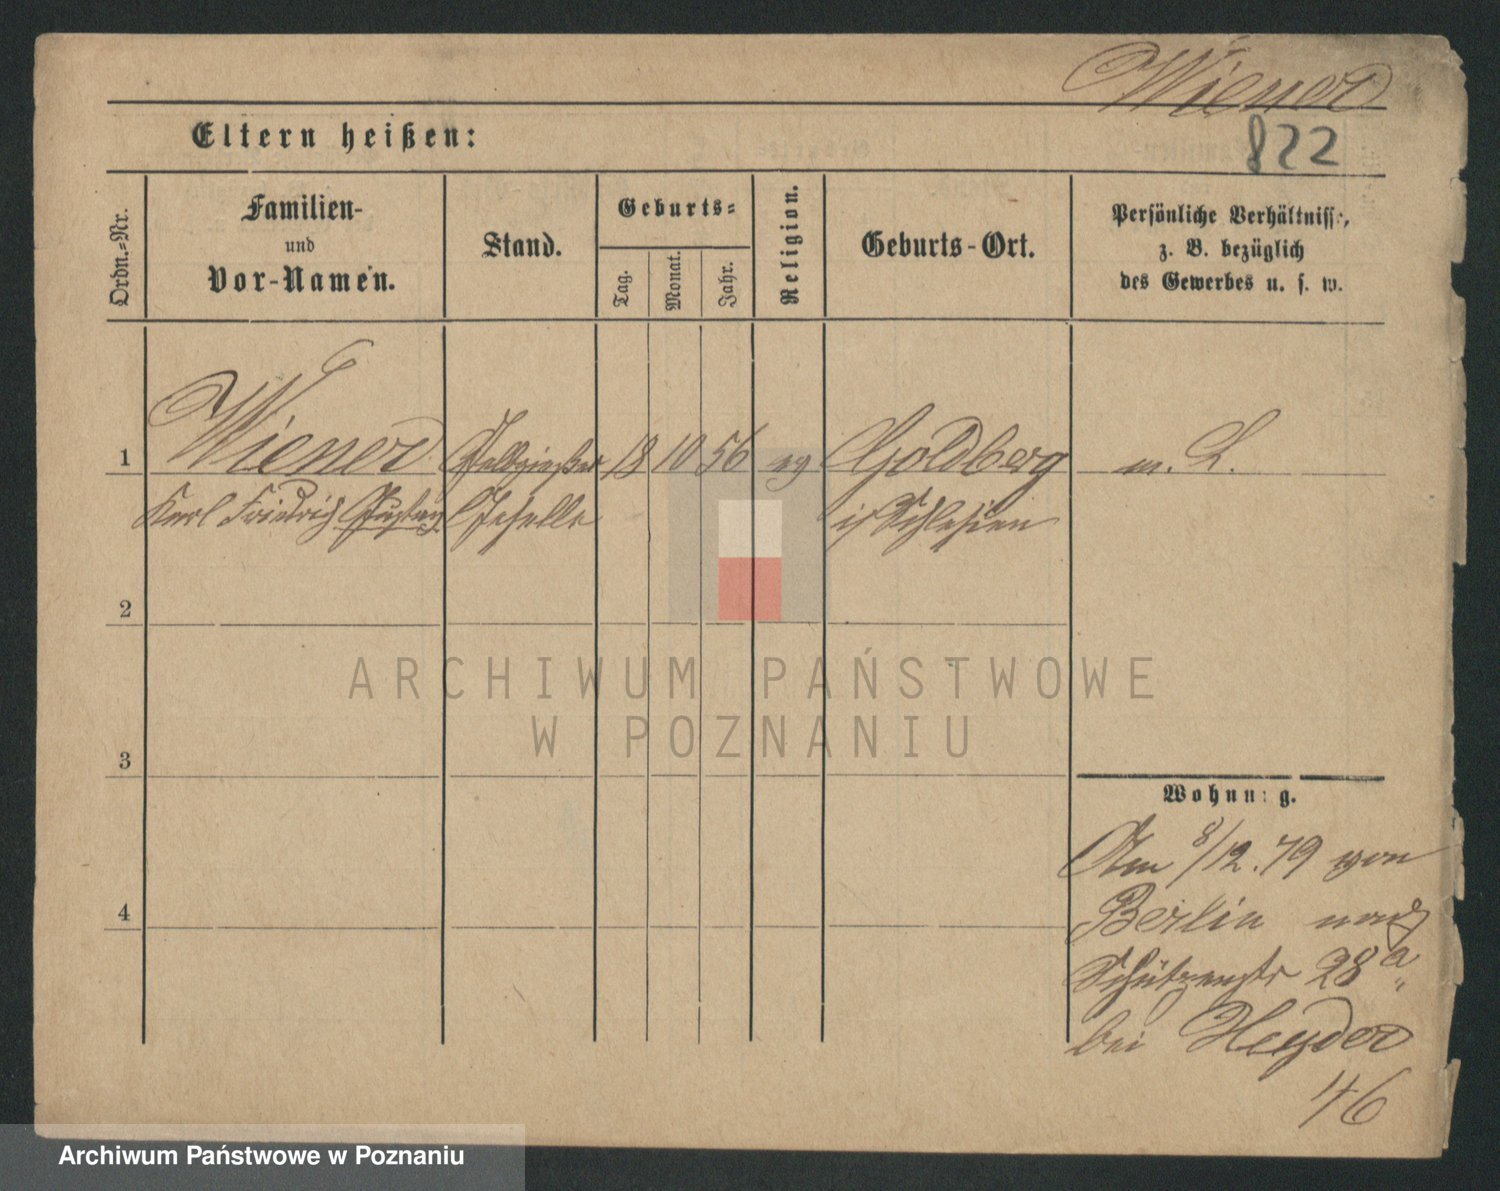 Wiener
822
Eltern heißen:
Ordn.-Nr.
Familien-
und
Vor-Namen.
Stand.
Geburts-
Tag.
Monat.
Jahr.
Religion.
Geburts-Ort.
Persönliche Verhältnisse,
z. B. bezüglich
des Gewerbes u. s. w.
1
Wiener
Karl Friedrich Gustav
Geselle
18
10
56
ev
Goldberg
i/ Schlesien
m. L.
2
3
4
Wohnung.
Am 8/12.79 von
Berlin nach
Schützenstr 28a.
bei Heyder
46
ARCHIWUM PAŃSTWOWE
W POZNANIU
Archiwum Państwowe w Poznaniu